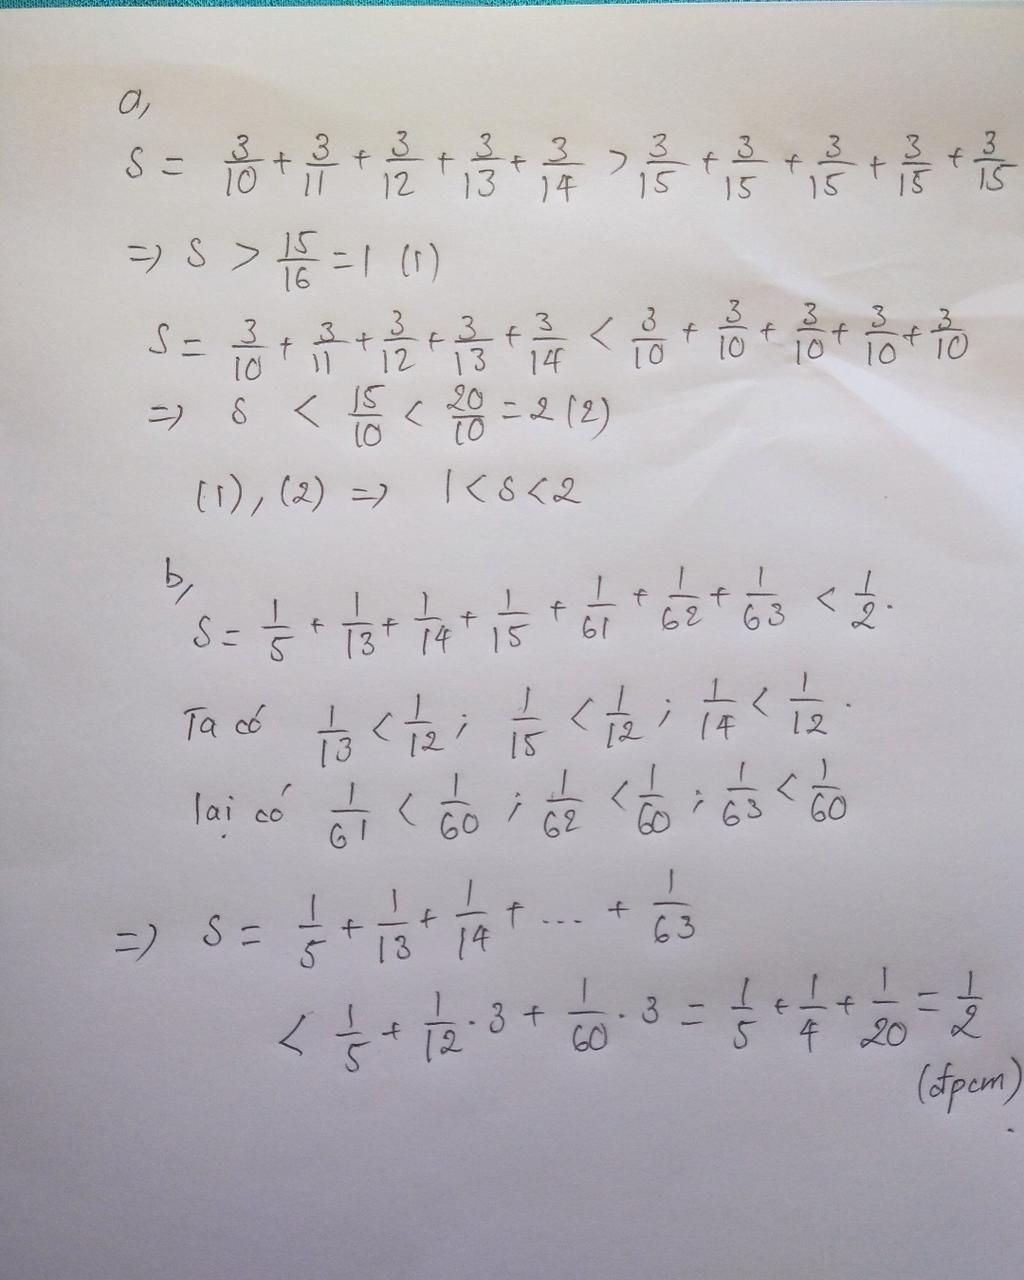 a,
S = 3/10 + 3/11 + 3/12 + 3/13 + 3/14 > 3/15 + 3/15 + 3/15 + 3/15 + 3/15
=> S > 15/16 = 1 (1)
S = 3/10 + 3/11 + 3/12 + 3/13 + 3/14 < 3/10 + 3/10 + 3/10 + 3/10 + 3/10
=> S < 15/10 < 20/10 = 2 (2)
(1), (2) => 1 < S < 2
b,
S = 1/5 + 1/13 + 1/14 + 1/15 + 1/61 + 1/62 + 1/63 < 1/2.
Ta có 1/13 < 1/12 ; 1/15 < 1/12 ; 1/14 < 1/12.
lại có 1/61 < 1/60 ; 1/62 < 1/60 ; 1/63 < 1/60
=> S = 1/5 + 1/13 + 1/14 + ... + 1/63
< 1/5 + 1/12 . 3 + 1/60 . 3 = 1/5 + 1/4 + 1/20 = 1/2
(đpcm)